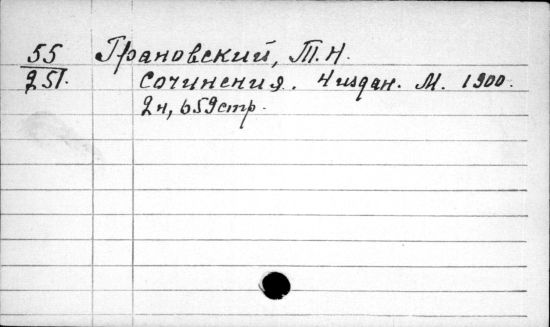 55 Грановский, Т. Н.
251. Сочинения. 4 издан. М. 1900.
2 ч, 659 стр.